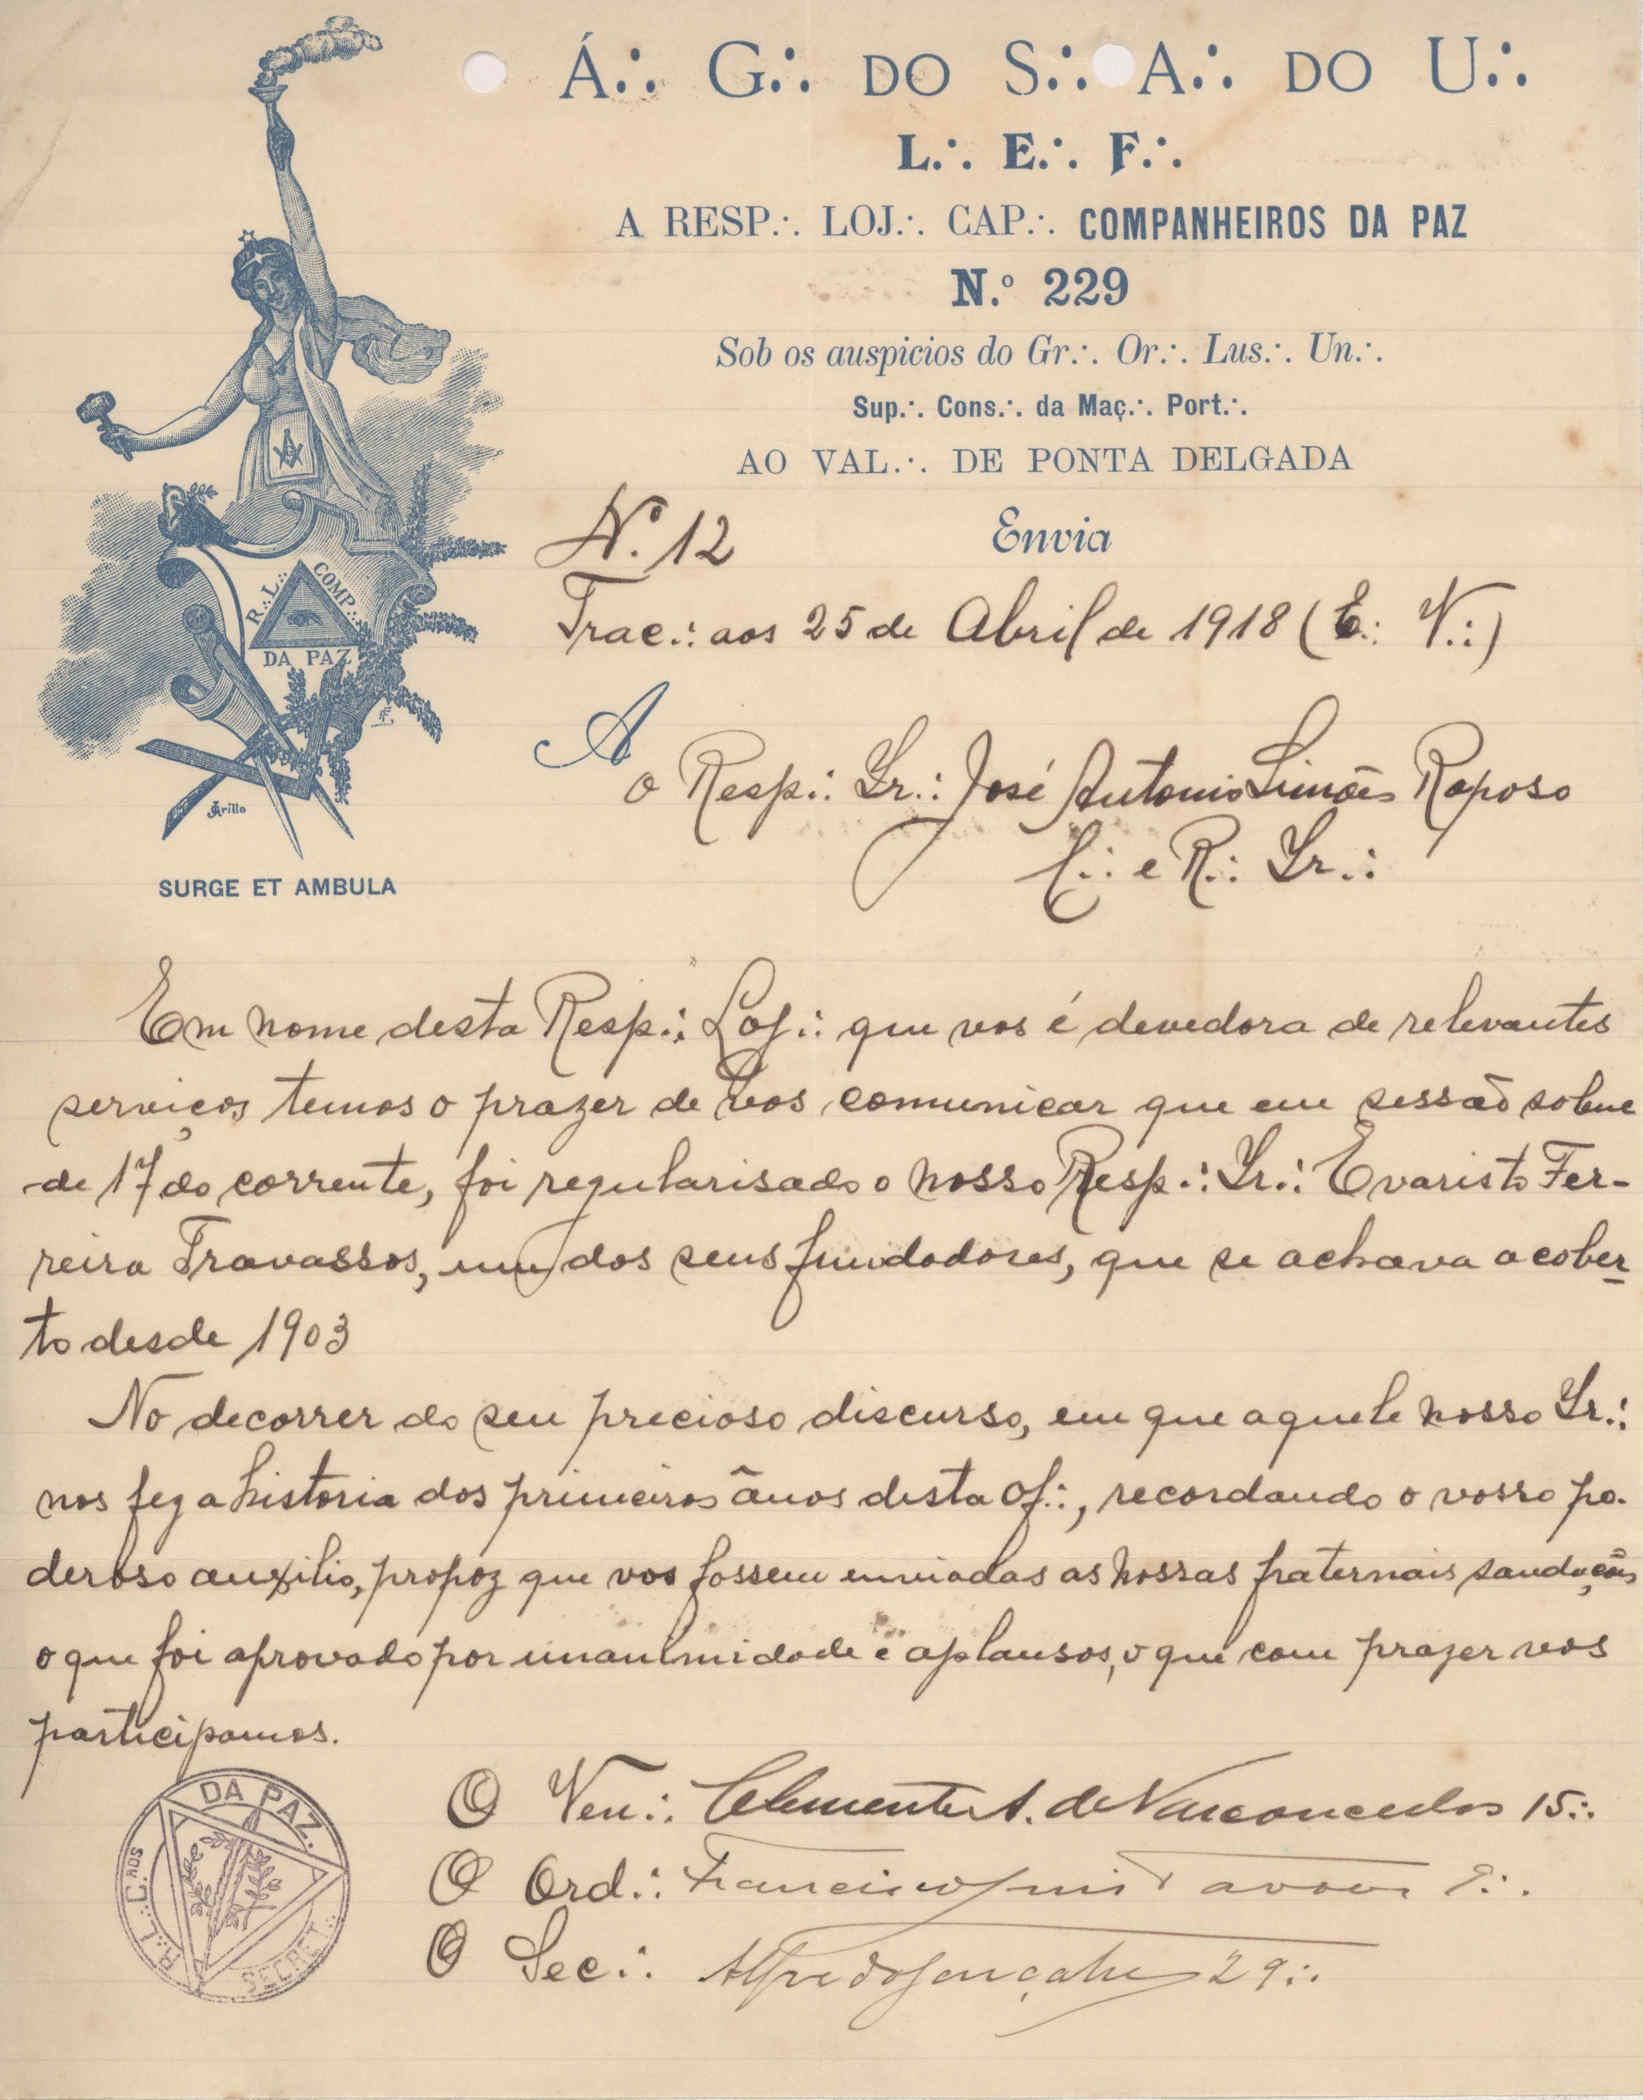 Á∴ G∴ DO S∴ A∴ DO U∴
L∴ E∴ F∴
A RESP∴ LOJ∴ CAP∴ COMPANHEIROS DA PAZ
N.º 229
Sob os auspicios do Gr∴ Or∴ Lus∴ Un∴
Sup∴ Cons∴ da Maç∴ Port∴
AO VAL∴ DE PONTA DELGADA
R∴ L∴ COMP∴
DA PAZ
Arillo
SURGE ET AMBULA
Nº. 12 Envia
Trac∴ aos 25 de Abril de 1918 (E∴ V∴)
A
o Resp∴ Ir∴ José Antonio Simões Raposo
C∴ e R∴ Ir∴
Em nome desta Resp∴ Loj∴ que vos é devedora de relevantes
serviços temos o prazer de vos comunicar que em sessão solene
de 17 do corrente, foi regularisado o nosso Resp∴ Ir∴ Evaristo Fer-
reira Travassos, um dos seus fundadores, que se achava a cober-
to desde 1903
No decorrer do seu precioso discurso, em que aquele nosso Ir∴
nos fez a historia dos primeiros ânos desta Of∴, recordando o vosso po-
deroso auxilio, propoz que vos fossem enviadas as nossas fraternais saudações
o que foi aprovado por unanimidade e aplausos, o que com prazer vos
participamos.
O Ven∴ Clemente A. de Vasconcelos 15∴
O Ord∴ Francisco Tavares
O Sec∴ Alfredo Gonçalves 29∴
R∴ L∴ C.HOS DA PAZ.
SECRET∴